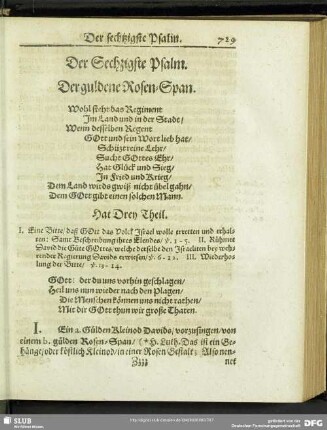 Der sechzigste Psalm. 729
Der Sechzigste Psalm.
Der guldene Rosen-Span.
Wohl steht das Regiment
Im Land und in der Stadt/
Wenn desselben Regent
GOtt und sein Wort lieb hat/
Schützt reine Lehr/
Sucht GOttes Ehr/
Hat Glück und Sieg/
In Fried und Krieg/
Dem Land wirds gwiß nicht übl gahn/
Dem GOtt gibt einen solchen Mann.
Hat Drey Theil.
I. Eine Bitte/ daß GOtt das Volck Israel wolle erretten und erhal-
ten: Samt Beschreibung ihres Elendes/ ℣. 1-5. II. Rühmet
David die Güte GOttes/ welche derselbe den Israeliten bey weh-
render Regierung Davids erwiesen/ ℣. 6-12. III. Wiederho-
lung der Bitte/ ℣. 13-14.
GOtt: der du uns vorhin geschlagen/
Heil uns nun wieder nach den Plagen/
Die Menschen können uns nicht rathen/
Mit dir GOtt thun wir große Thaten.
I. Ein a. Gülden Kleinod Davids, vorzusingen/ von
einem b. gülden Rosen-Span/ (* H. Luth. Das ist ein Ge-
hänge/ oder köstlich Kleinod/ in einer Rosen Gestalt; Also nen-
Zzzz net
SLUB
Wir führen Wissen.
http://digital.slub-dresden.de/
gefördert von der
Deutschen Forschungsgemeinschaft
DFG